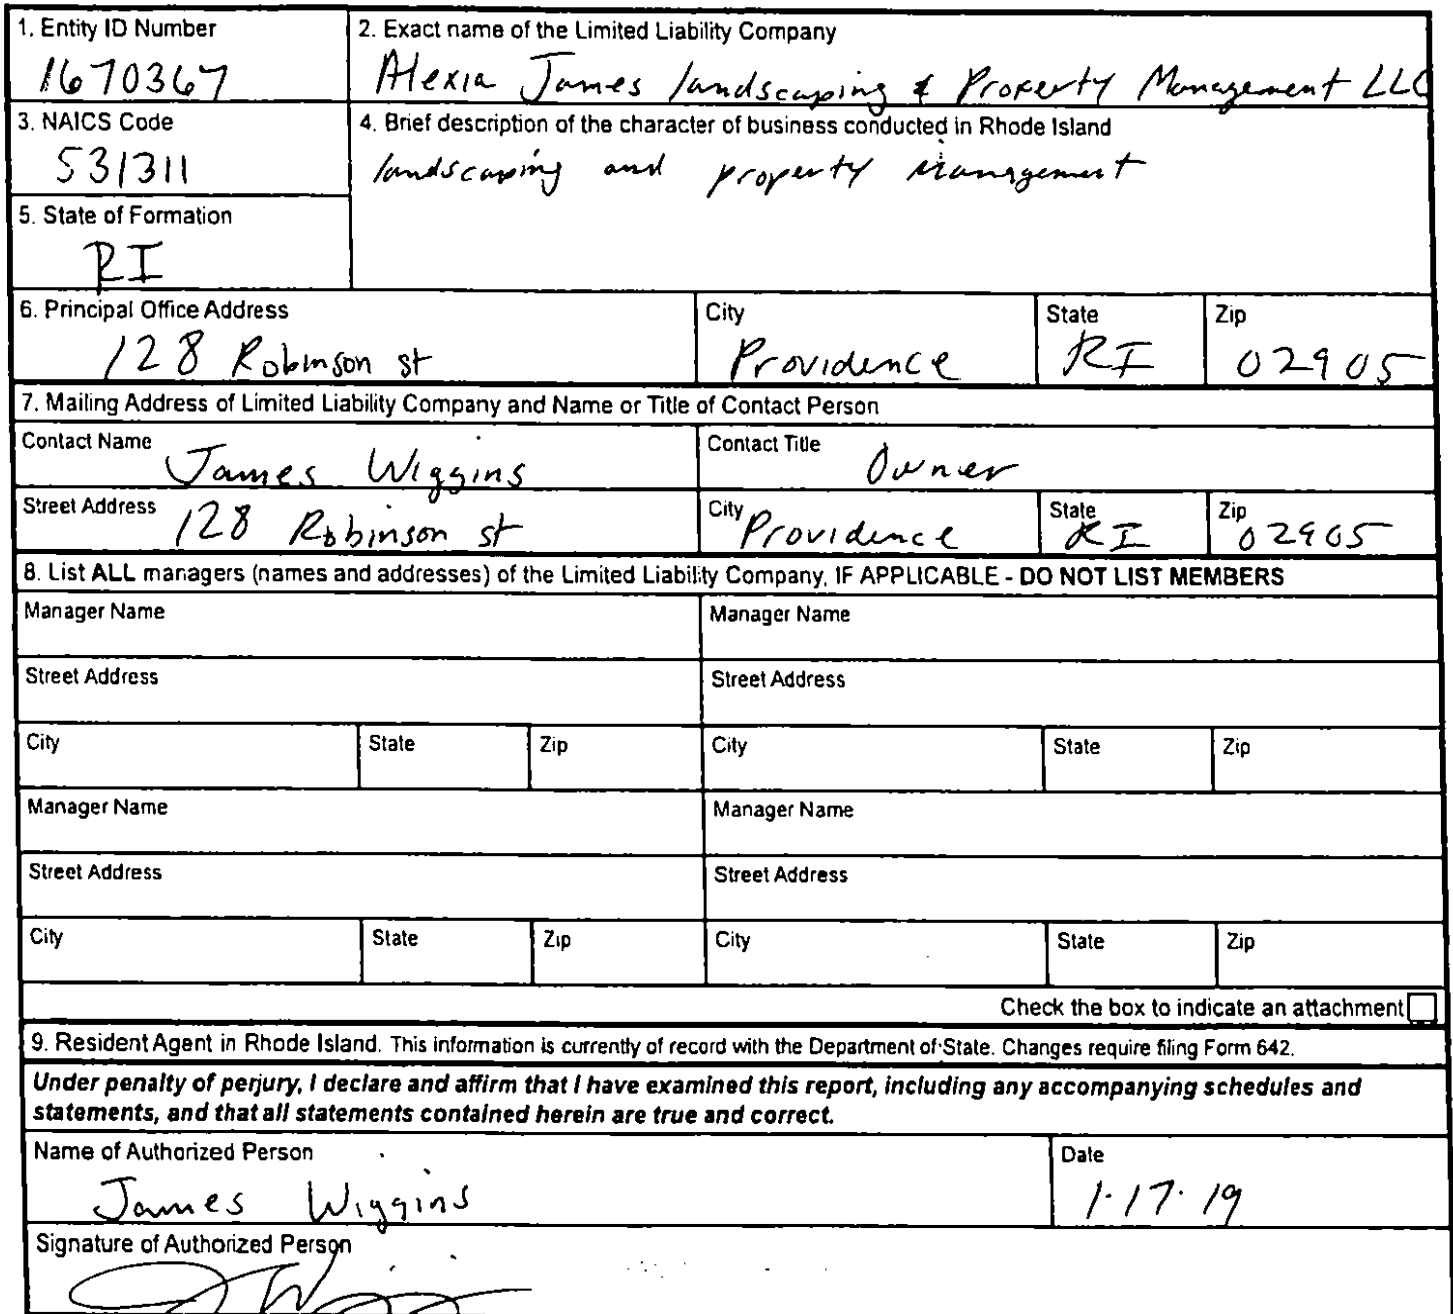 1. Entity ID Number
1670367
2. Exact name of the Limited Liability Company
Alexia James landscaping & Property Management LLC
3. NAICS Code
531311
4. Brief description of the character of business conducted in Rhode Island
landscaping and property management
5. State of Formation
RI
6. Principal Office Address
128 Robinson st
City
Providence
State
RI
Zip
02905
7. Mailing Address of Limited Liability Company and Name or Title of Contact Person
Contact Name
James Wiggins
Contact Title
Owner
Street Address
128 Robinson st
City
Providence
State
RI
Zip
02905
8. List ALL managers (names and addresses) of the Limited Liability Company, IF APPLICABLE - DO NOT LIST MEMBERS
Manager Name
Manager Name
Street Address
Street Address
City State Zip City State Zip
Manager Name
Manager Name
Street Address
Street Address
City State Zip City State Zip
Check the box to indicate an attachment
9. Resident Agent in Rhode Island. This information is currently of record with the Department of State. Changes require filing Form 642.
Under penalty of perjury, I declare and affirm that I have examined this report, including any accompanying schedules and
statements, and that all statements contained herein are true and correct.
Name of Authorized Person
James Wiggins
Date
1·17·19
Signature of Authorized Person